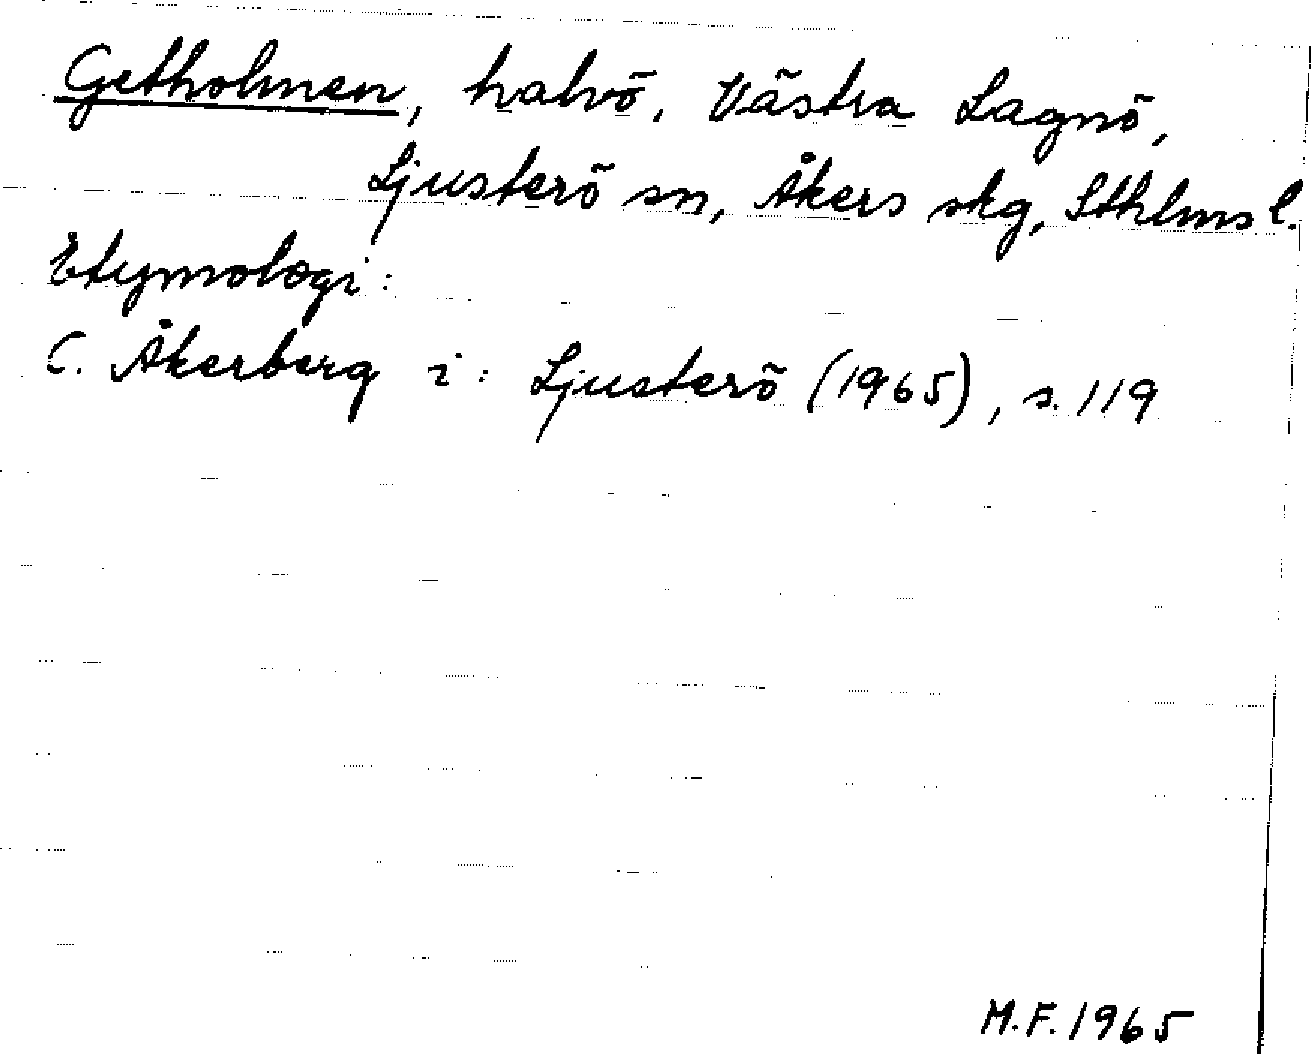 Getholmen, halvö, Västra Lagnö,
Ljusterö sn, Åkers skg, Sthlms l.
Etymologi:
C. Åkerberg i: Ljusterö (1965), s. 119
M.F. 1965